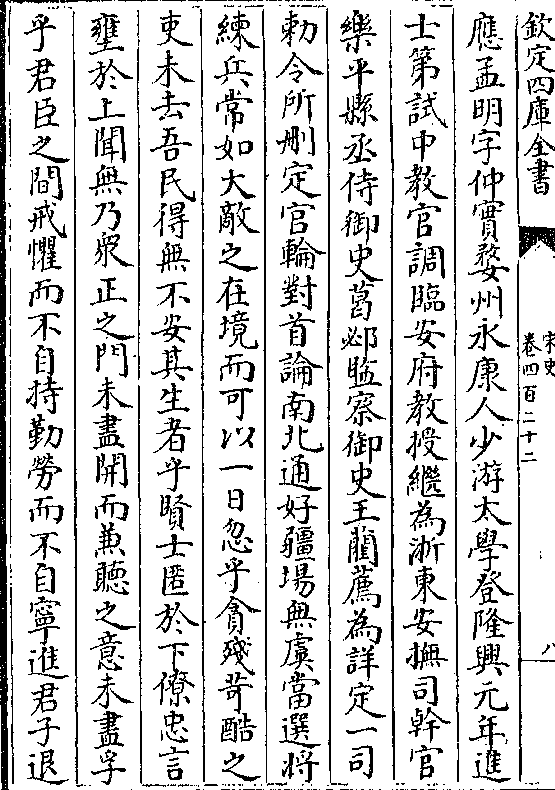 欽定四庫全書
宋史
卷四百二十二
八
應孟明字仲實婺州永康人少游太學登隆興元年進
士第試中教官調臨安府教授繼為浙東安撫司幹官
樂平縣丞侍御史葛邲監察御史王藺薦為詳定一司
勅令所刪定官輪對首論南北通好疆場無虞當選將
練兵常如大敵之在境而可以一日忽乎貪殘苛酷之
吏未去吾民得無不安其生者乎賢士匿於下僚忠言
壅於上聞無乃衆正之門未盡開而兼聽之意未盡孚
乎君臣之間戒懼而不自持勤勞而不自寧進君子退